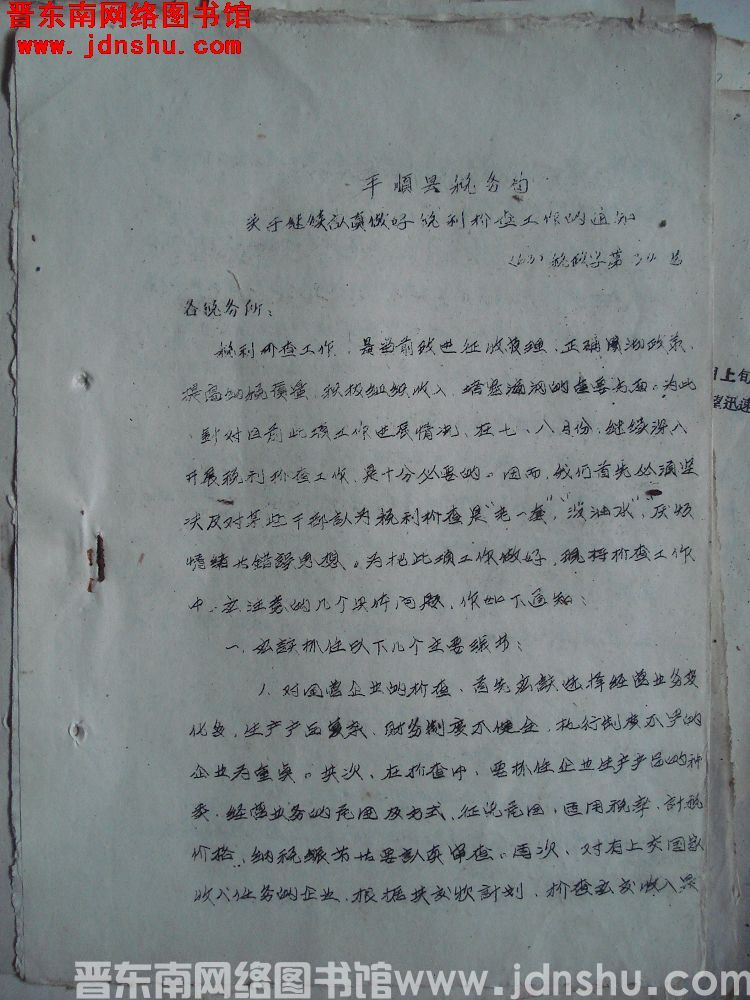 晋东南网络图书馆
www.jdnshu.com
平顺县税务局
关于继续认真做好税利检查工作的通知
(63)税征字第 号
各税务所：
税利检查工作，是当前改进征收管理，正确贯彻政策，
提高纳税质量，积极组织收入，堵塞漏洞的重要方面。为此
，针对目前此项工作进展情况，在七、八月份，继续深入
开展税利检查工作，是十分必要的。因而，我们首先必须坚
决反对某些干部认为税利检查是"老一套"，"没油水"，厌烦
情绪等错误思想。为把此项工作做好，现将检查工作
中，应注意的几个具体问题，作如下通知：
一、应该抓住以下几个主要环节：
1、对国营企业的检查，首先应该选择经营业务变
化多，生产产品复杂，财务制度不健全，执行制度不严的
企业为重点。其次，在检查中，要抓住企业生产产品的种
类，经营业务的范围及方式，征免范围，适用税率，計税
价格，纳税环节等要认真审查。再次，对有上交国家
收入任务的企业，根据其交款計划，检查应交收入是
月上旬
迅速
晋东南网络图书馆www.jdnshu.com